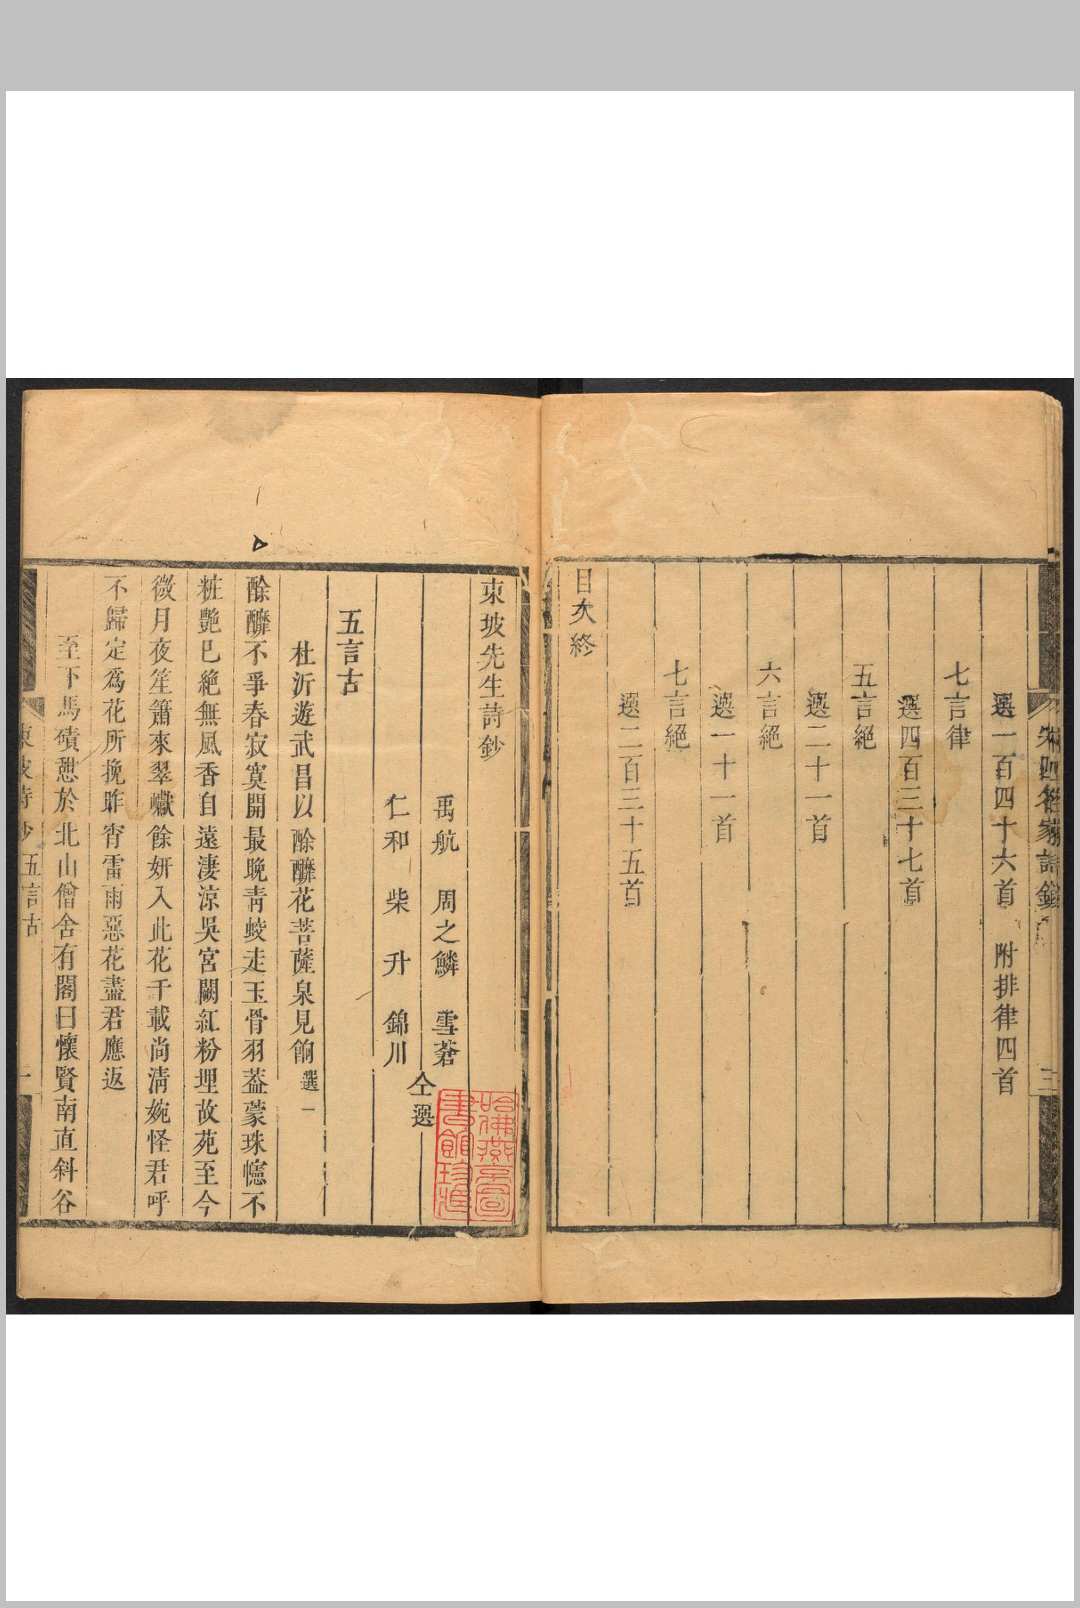 選一百四十六首　附排律四首
七言律
選四百三十七首
五言絕
選二十一首
六言絕
選一十一首
七言絕
選二百三十五首
目次終
宋四名家詩鈔
三
東坡先生詩鈔
禹航　周之鱗　雪蒼
仁和　柴　升　錦川
仝選
五言古
杜沂遊武昌以酴醾花菩薩泉見餉選一
酴醾不爭春寂寞開最晚青蛟走玉骨羽葢蒙珠幰不
粧艷已絕無風香自遠淒涼吳宮闕紅粉埋故苑至今
微月夜笙簫來翠巘餘妍入此花千載尚清婉怪君呼
不歸定爲花所挽昨宵雷雨惡花盡君應返
至下馬磧憩於北山僧舍有閣曰懷賢南直斜谷
東坡詩鈔　五言古
一
哈佛燕京圖
書館珍藏